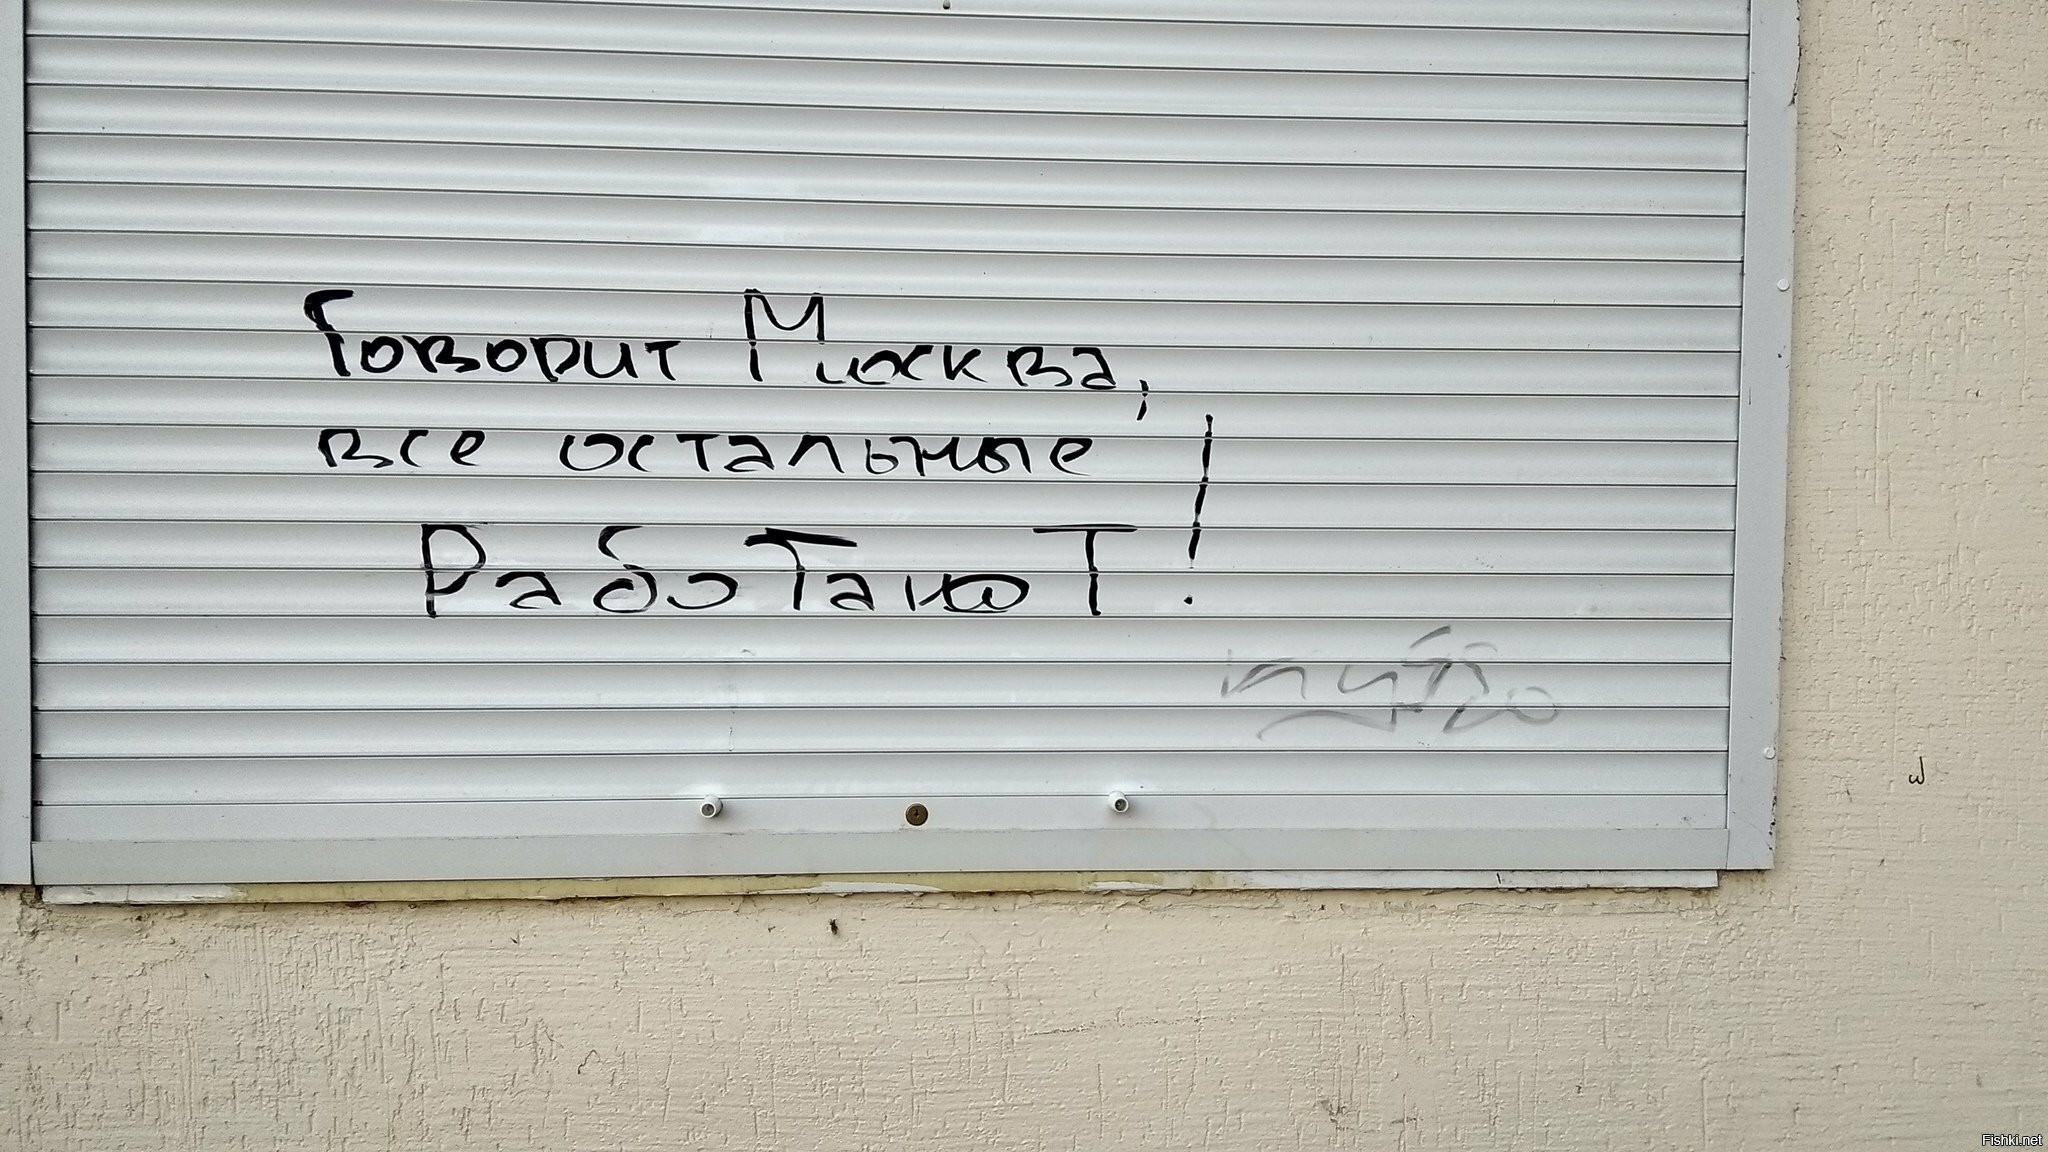 Говорит Москва,
все остальные
РаботаюТ!
Fishki.net